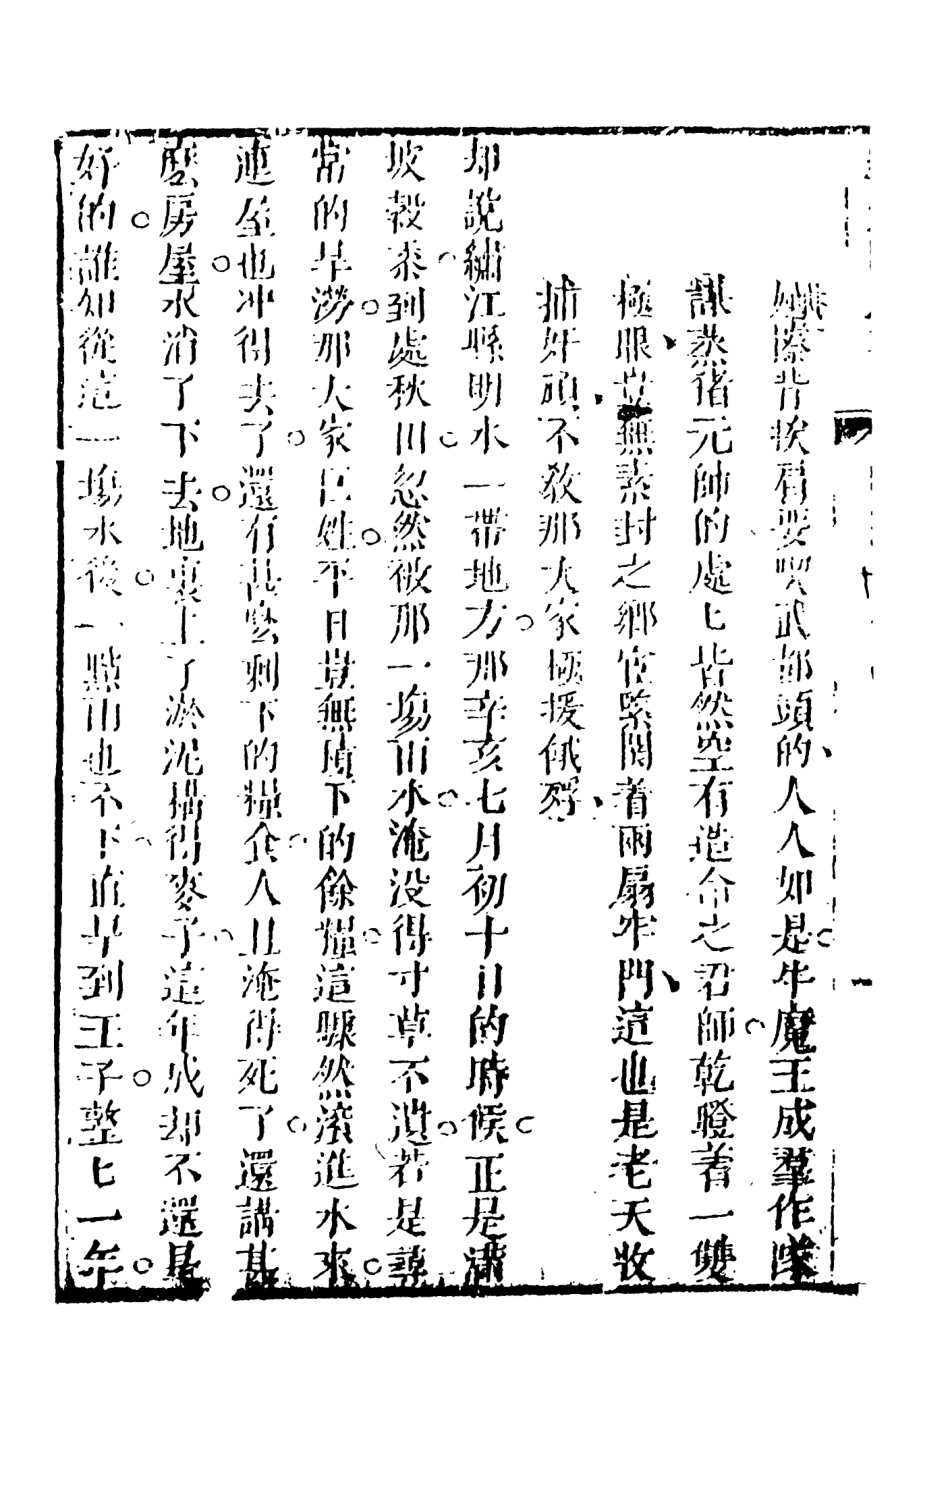 湊背挨肩要喫武都頭的人人如是牛魔王成羣作隊
訊蒸偖元帥的處七皆然空有造命之君師乾瞪着一雙
極眼並無素封之鄉宦緊閉着兩扇牢門這也是老天收
捕奸頑不敎那大家極援餓殍
却說繡江縣明水一帶地方那辛亥七月初十日的時候正是滿
坡穀黍到處秋田忽然被那一塲雨水淹没得寸草不遺若是尋
常的旱澇那大家巨姓平日豈無積下的餘糧這驟然滾進水來
連屋也冲得去了還有甚麽剩下的糧食人且淹得死了還講甚
麽房屋水消了下去地裏上了淤泥搆得麥子這年成却不還是
好的誰知從這一塲水後一點雨也不下直旱到壬子整七一年